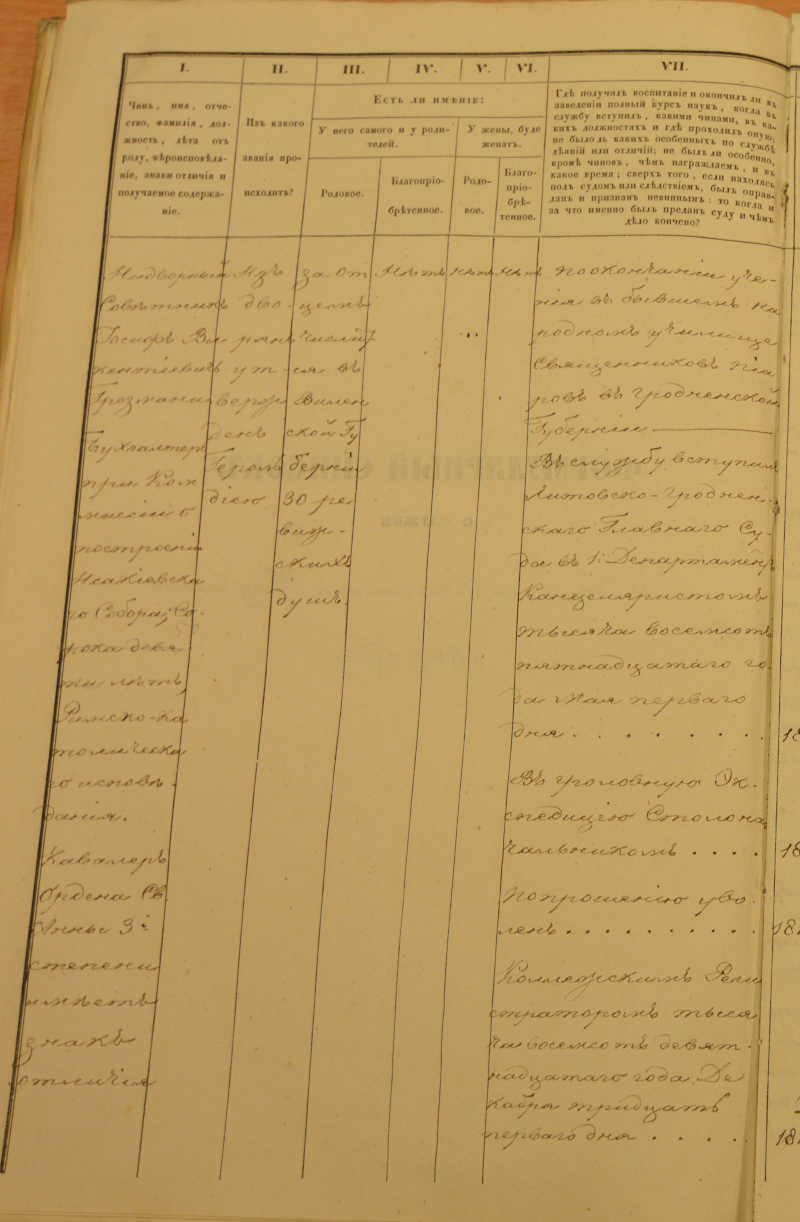 I.
II.
III.
IV.
V.
VI.
VII.
Чинъ, имя, отче-
ство, фамилія, дол-
жность, лѣта отъ
роду, вѣроисповѣда-
ніе, знаки отличія и
получаемое содержа-
ніе.
Изъ какого
званія про-
исходитъ?
Есть ли имѣніе:
У него самого и у роди-
телей.
У жены, буде
женатъ.
Родовое.
Благопріо-
брѣтенное.
Родо-
вое.
Благо-
пріо-
брѣ-
тенное.
Гдѣ получилъ воспитаніе и окончилъ ли въ
заведеніи полный курсъ наукъ, когда въ
службу вступилъ, какими чинами, въ ка-
кихъ должностяхъ и гдѣ проходилъ оную;
не было ль какихъ особенныхъ по службѣ
дѣяній или отличій; не былъ ли особенно,
кромѣ чиновъ, чѣмъ награждаемъ, и въ
какое время; сверхъ того, если находясь
подъ судомъ или слѣдствіемъ, былъ оправ-
данъ и признанъ невиннымъ: то когда и
за что именно былъ преданъ суду и чѣмъ
дѣло кончено?
Надворный
Совѣтникъ
Госифъ Ви-
кентіевичъ
Бухгалтеръ
при Ком
мисіи о
построеніи
Исакіевска
го Собора, Со-
рока девя
ти лѣтъ,
Римско-ка
толическа
го исповѣ
данія.
Кавалеръ
Ордена Св.
Анны 3й
степени
имѣетъ
знакъ
отличія
Изъ
дво-
рянъ
утверж
денъ
Герольдіею
за от
цемъ
числит
ся въ
Вилен
ской Гу
берніи
30 ре
виж-
скихъ
душъ
Нѣтъ
Нѣтъ
Нѣтъ
По окончаніи уче-
нія въ бывшемъ На
родномъ училище
Священниковъ Піа
ровъ въ Гродненской
Губерніи
Въ службу вступилъ
Литовско-Гроднен-
скаго Главнаго Су-
да въ 1й Департаментъ
Канцеляристомъ
тысяча восемсотъ
пятнадцатаго го
да Мая перваго
дня
Въ Уголовную Эк-
спедицію Столона
чальникомъ
По прошенію уво-
ленъ
Коллежскимъ Реги
страторомъ тыся
ча восемсотъ девят-
надцатаго года Де
кабря тридцать
перваго дня